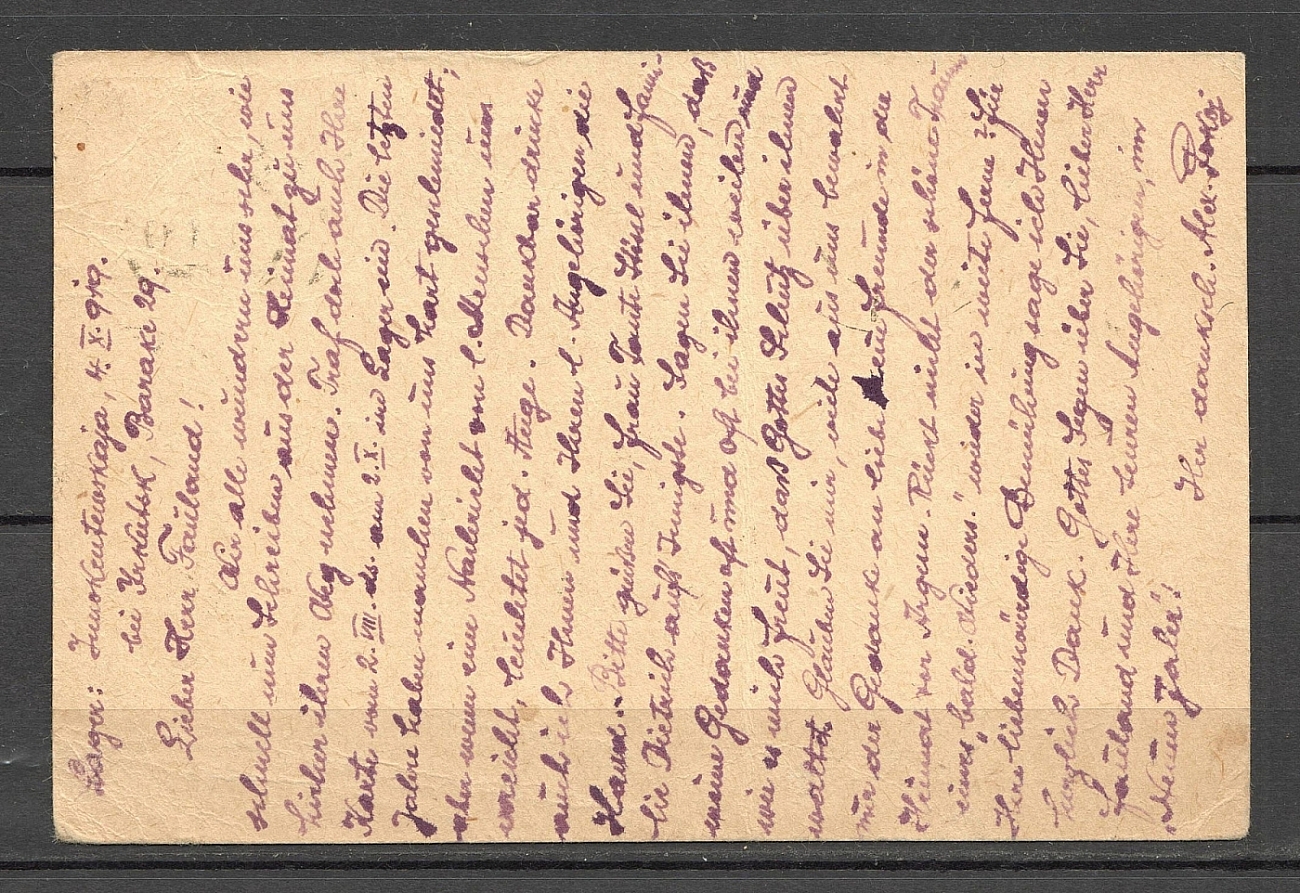 Lager: Innokentewskaja, 4. X. 919.
bei Irkutsk, Barake 29.
Lieber Herr Fauland!
Wir alle wundren uns sehr, wie
schnell nun Schreiben aus der Heimat zu uns
hieher ihren Weg nehmen. Traf doch auch Ihre
Karte vom 2. VIII. ds. am 2. X. im Lager ein. Die letzten
Jahre haben manchen von uns hart geschmiedet;
aber wenn eine Nachricht von l. Menschen uns
erreicht, leuchtet jed. Auge. Dankbar drücke
auch ich Ihnen und Ihren l. Angehörigen die
Hand. Bitte grüßen Sie, Frau Tante und Fami-
lie Dietrich aufs Innigste. Sagen Sie ihnen, daß
meine Gedanken oft und oft bei ihnen weilen und
wie es mich freut, daß Gottes Schutz über ihnen
waltet. Glauben Sie mir, viele aus uns bewahrt
nur der Gedanke an liebe, treue Freunde in der
Heimat vor Argem. Rückt nicht der schöne Traum
eines „bald. Wieders." wieder in weite Ferne? Für
Ihre liebenswürdige Bemühung sage ich Ihnen
herzlich Dank. Gottes Segen über Sie, lieber Herr
Fauland und Ihre teuren Angehörigen, im
„Neuen Jahr"!
Ihr danksch. Alex.